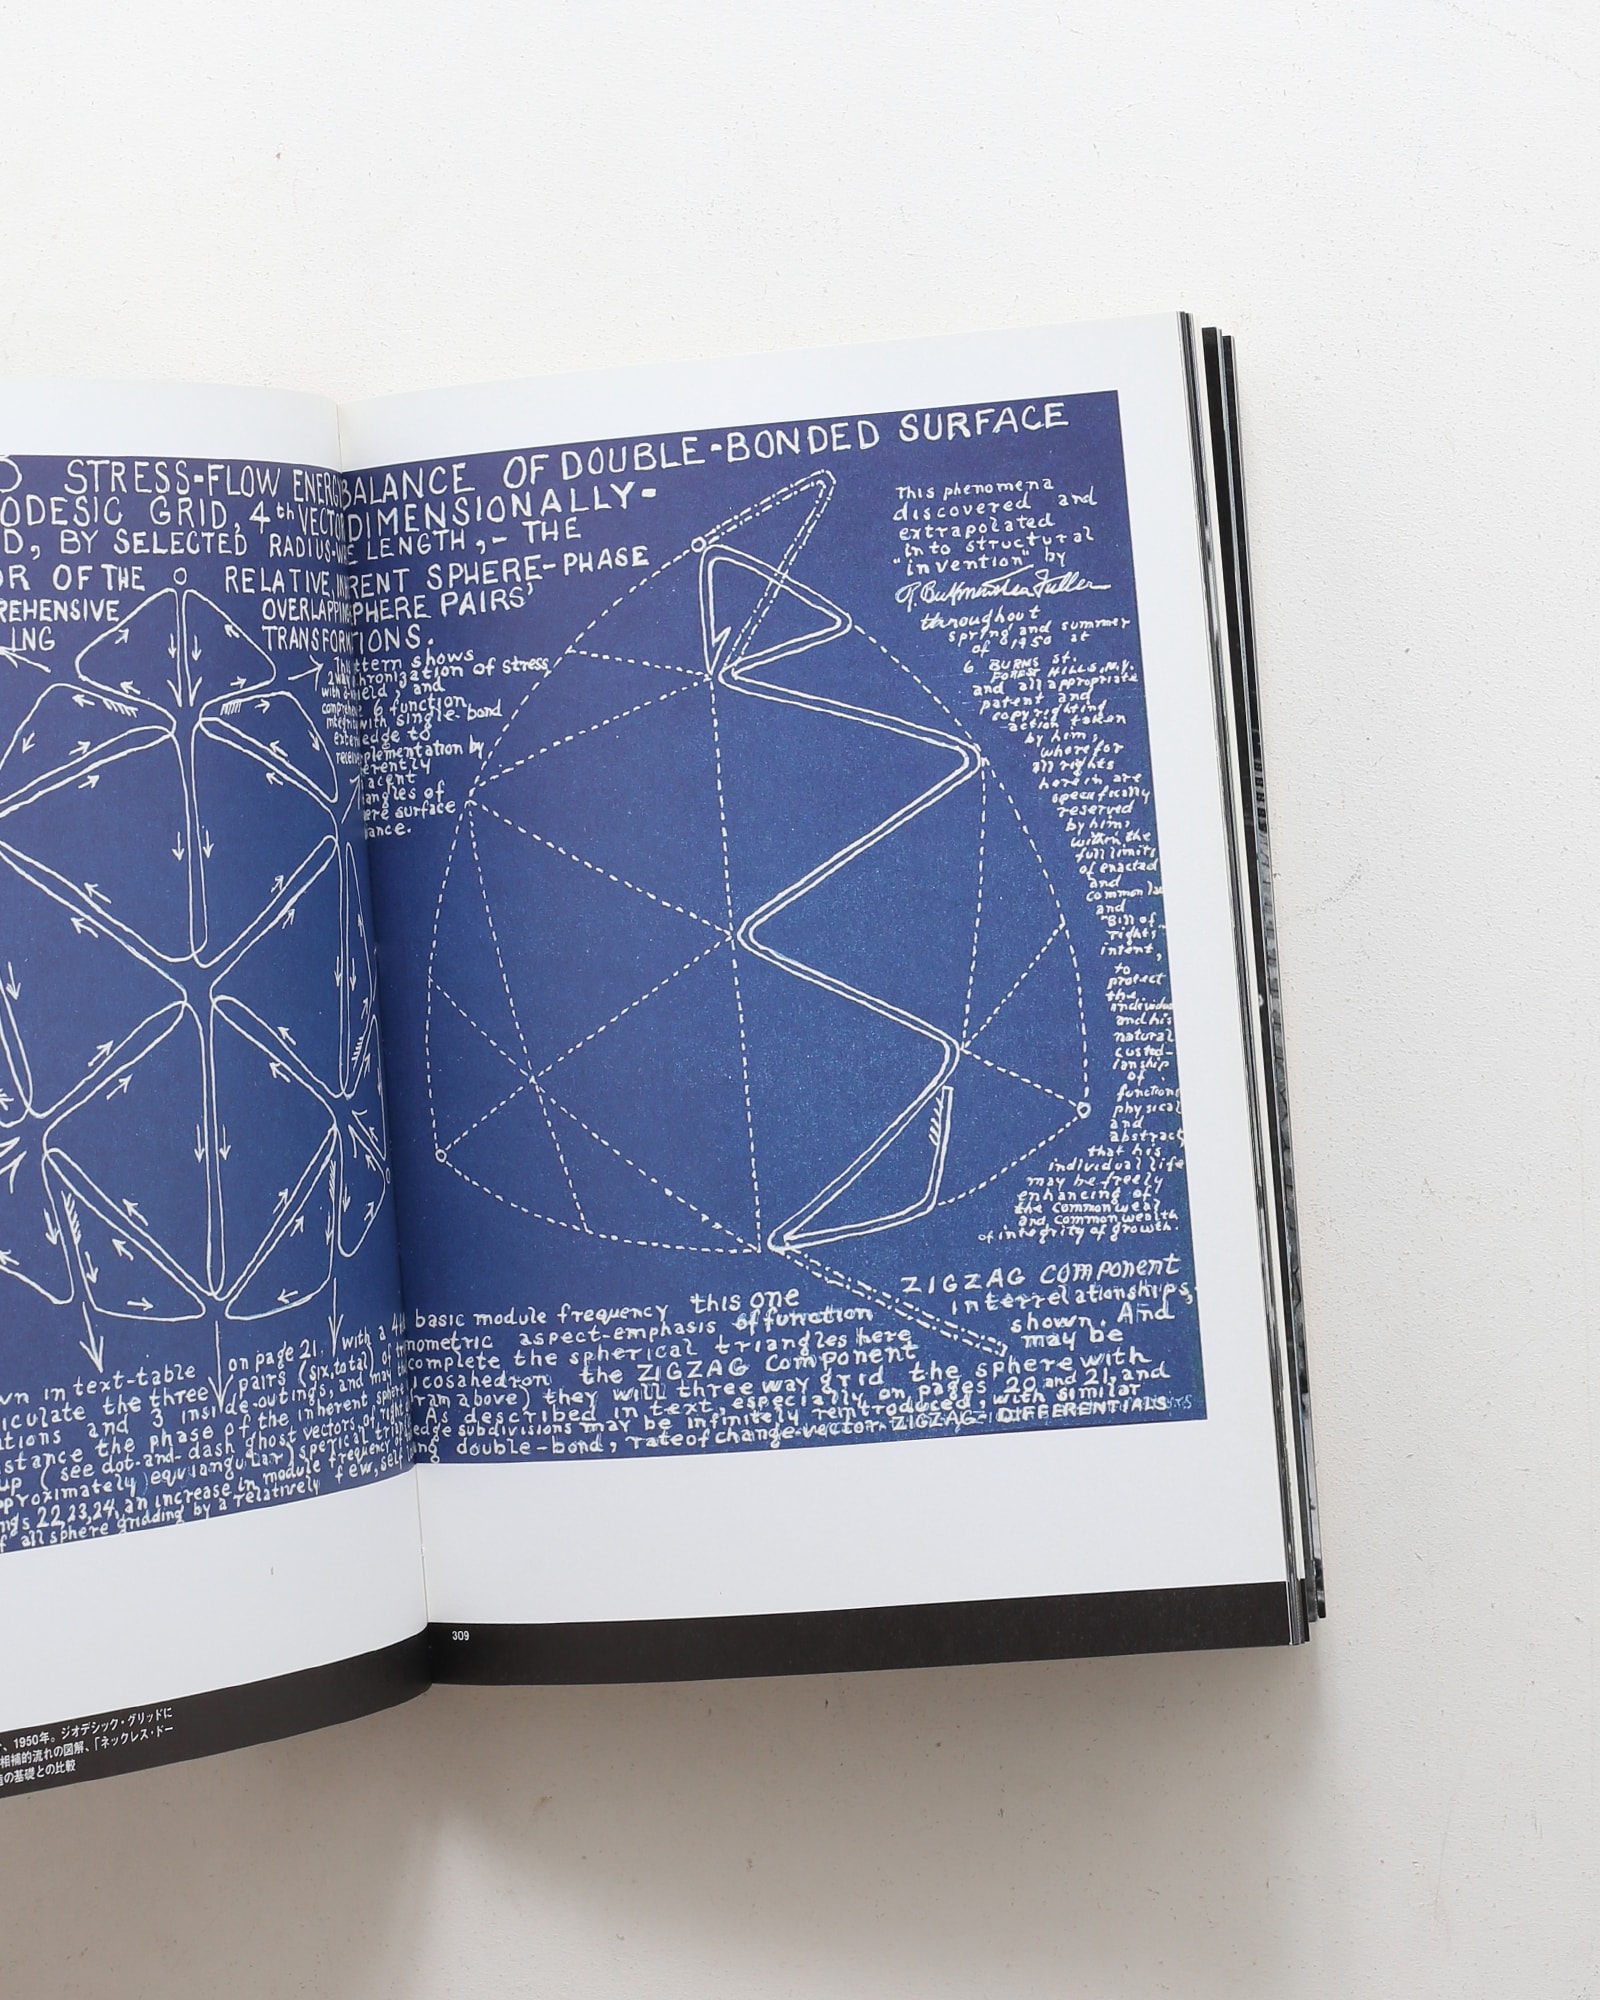 STRESS-FLOW ENERGY BALANCE OF DOUBLE-BONDED SURFACE
ODESIC GRID, 4th VECTOR DIMENSIONALLY-
D, BY SELECTED RADIUS-WIRE LENGTH,- THE
OR OF THE RELATIVE, INHERENT SPHERE-PHASE
REHENSIVE OVERLAPPING SPHERE PAIRS'
LNG TRANSFORMATIONS.
pattern shows
synchronization of stress
with field, and
6 function
with single-bond
edge to
complementation by
inherently
adjacent
triangles of
sphere surface
balance.
This phenomena
discovered and
extrapolated
into structural
"invention" by
R. Buckminster Fuller
throughout
spring and summer
of 1950 at
6 BURNS st.
FOREST HILLS, N.Y.
and all appropriate
patent and
copyrighting
action taken
by him;
wherefor
all rights
herein are
specifically
reserved
by him;
within the
full limits
of enacted
and
common law
and
"Bill of
rights"
intent,
to
protect
the
individual
and his
natural
custod-
ianship
of
functions
physical
and
abstract
that his
individual life
may be freely
enhancing of
the commonweal
and commonwealth
of integrity of growth.
ZIGZAG component
interrelationships,
shown. And
may be
basic module frequency this one
nometric aspect-emphasis of function
complete the spherical triangles here
icosahedron the ZIGZAG component
ram above) they will three way grid the sphere with
As described in text, especially on pages 20 and 21, and
edge subdivisions may be infinitely reintroduced, with similar
ng double-bond, rate of change-vector-ZIGZAG- DIFFERENTIALS
wn in text-table on page 21. with a 4th
iculate the three pairs (six, total) of
ations and 3 inside-outings, and may
istance the phase of the inherent sphere
up (see dot-and-dash ghost vectors of right
pproximately equiangular) sperical
ngs 22,23,24, an increase in module frequency of
f all sphere gridding by a relatively few, self
309
、1950年。ジオデシック・グリッドに
相補的流れの図解、「ネックレス・ドー
の基礎との比較